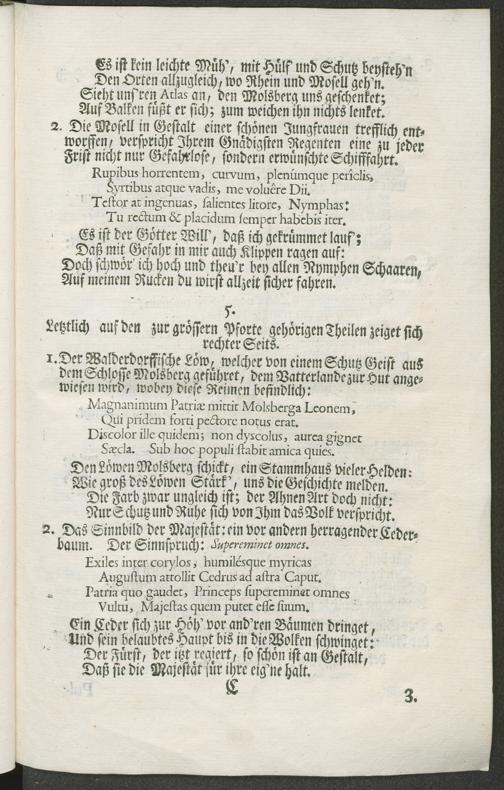 Es ist kein leichte Müh', mit Hülf' und Schutz beysteh'n
Den Orten allzugleich, wo Rhein und Mosell geh'n.
Sieht uns'ren Atlas an, den Molsberg uns geschenket;
Auf Balken füßt er sich; zum weichen ihn nichts lenket.
2. Die Mosell in Gestalt einer schönen Jungfrauen trefflich ent-
worffen, verspricht Ihrem Gnädigsten Regenten eine zu jeder
Frist nicht nur Gefahrlose, sondern erwünschte Schifffahrt.
Rupibus horrentem, curvum, plenúmque periclis,
Syrtibus atque vadis, me voluêre Dii.
Testor at ingenuas, salientes litore, Nymphas:
Tu rectum & placidum semper habebis iter.
Es ist der Götter Will', daß ich gekrümmet lauf';
Daß mit Gefahr in mir auch Klippen ragen auf:
Doch schwör' ich hoch und theu'r bey allen Nymphen Schaaren,
Auf meinem Rucken du wirst allzeit sicher fahren.
5.
Letztlich auf den zur grössern Pforte gehörigen Theilen zeiget sich
rechter Seits.
1. Der Walderdorffische Löw, welcher von einem Schutz Geist aus
dem Schlosse Molsberg geführet, dem Vatterlande zur Hut ange-
wiesen wird, wobey diese Reimen befindlich:
Magnanimum Patriæ mittit Molsberga Leonem,
Qui pridem forti pectore notus erat.
Discolor ille quidem; non dyscolus, aurea gignet
Sæcla. Sub hoc populi stabit amica quies.
Den Löwen Molsberg schickt, ein Stammhaus vieler Helden:
Wie groß des Löwen Stärk', uns die Geschichte melden.
Die Farb zwar ungleich ist; der Ahnen Art doch nicht:
Nur Schutz und Ruhe sich von Ihm das Volk verspricht.
2. Das Sinnbild der Majestät: ein vor andern herragender Ceder-
baum. Der Sinnspruch: Supereminet omnes.
Exiles inter corylos, humilésque myricas
Augustum attollit Cedrus ad astra Caput.
Patria quo gaudet, Princeps supereminet omnes
Vultu, Majestas quem putet esse suum.
Ein Ceder sich zur Höh' vor and'ren Bäumen dringet,
Und sein belaubtes Haupt bis in die Wolken schwinget:
Der Fürst, der itzt regiert, so schön ist an Gestalt,
Daß sie die Majestät für ihre eig'ne halt.
C
3.